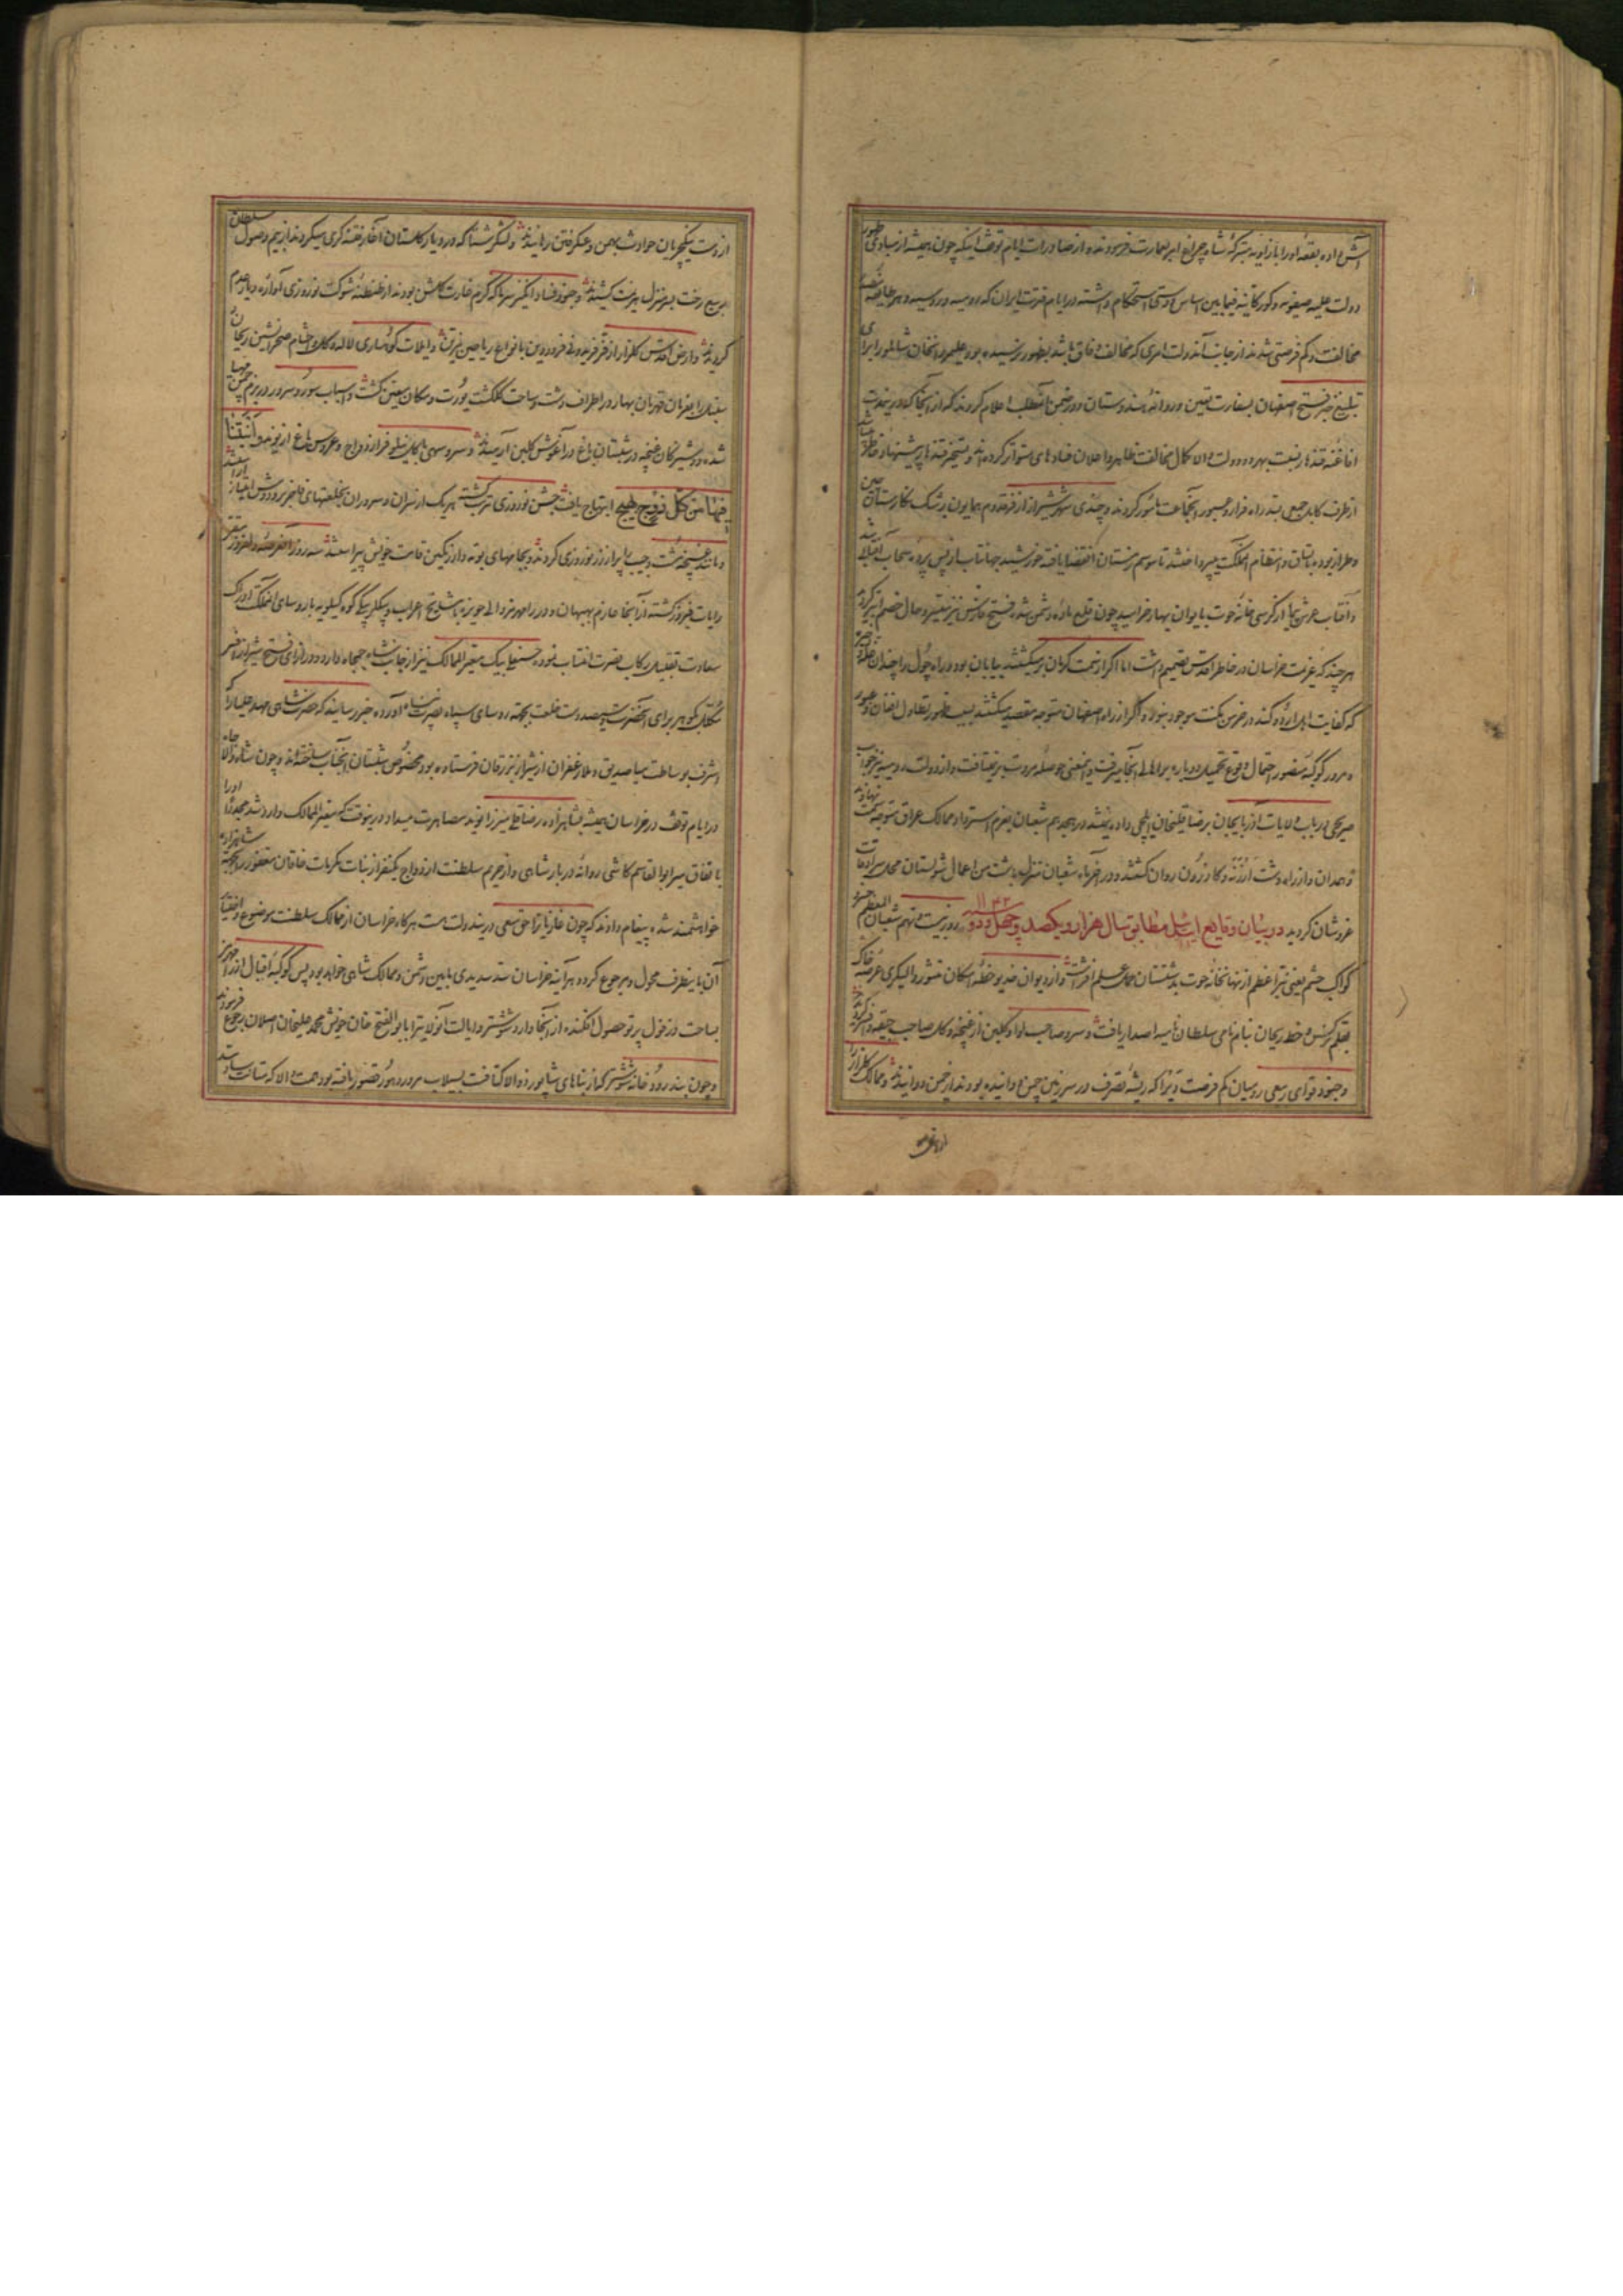 آتش داده بقعه او را با زاویه متبرکه شاه چراغ امر بعمارت فرمودند و از صادرات ایام توقف اینکه چون همیشه از مبادی ظهور
دولت علیه صفویه و کورکانیه فیمابین اساس دوستی استحکام داشته در ایام فترت ایران که رومیه و روسیه و هر طایفه رخصه
مخالفت و کم فرصتی شدند از جانب آندولت امری که مخالف وفاق باشد بظهور نرسیده بود علیمردانخان شاملو را برای
تبلیغ خبر فتح اصفهان بسفارت تعیین و روانه هندوستان و در ضمن آنمطلب اعلام کردند که از آنجا که درینمدت
افاغنه قندهار نسبت بهر دو دولت والا کمال مخالفت ظاهر و اعلان فسادهای متواتر کرده اند و تسخیر قندهار پیشنهاد خاطر
از طرف کابل جمعی بسد راه فرار و عبور آنجماعت مأمور کردند و چندی شهر شیراز از فر قدوم همایون رشک نگارستان چین
و طراز بوده به تنسق و انتظام آنمملکت میپرداختند تا موسم زمستان انقضا یافته خورشید جهانتاب از پس پرده سحاب
و آفتاب عرش پیما از کرسی خانه حوت بایوان بهار خرامید چون قلع ماده دشمن شده فتح فارس نیز میسر و حال خصم ابتر گردید
هر چند که عزیمت خراسان در خاطر اقدس تصمیم داشت اما اگر از سمت کرمان برمیگشتند بیابان بود و راه چول و چندان غله
که کفایت اهل اردو کند در عرض مکنت موجود نبود و اگر از راه اصفهان متوجه مقصد میگشتند بسبب ظهور تطاول افغان و عبور
و مرور کوکبه منصور احتمال وقوع تحمیل دوباره بر اهالی آنجا میرفت و اینمعنی حوصله مروت بر نمیتافت و از دولت رومیه نیز جواب
صریحی در باب ولایات آذربایجان برضاقلیخان ایلچی داده نمیشد در هجدهم شعبان بعزم استرداد ممالک عراق متوجه سمت نهاوند
و همدان و از راه دشت ارژنه و کازرون روان گشتند و در آخر ماه شعبان منزل باشت من اعمال شولستان محل سرادقات
عز و شان گردید در بیان وقایع ایت ئیل مطابق سال هزار و یکصد و چهل و دو ۱۱۴۲ روز بیست و نهم شعبان المعظم خسرو
کواکب حشم یعنی نیر اعظم از نهانخانه حوت بدشتستان حمل علم افراشت و از دیوان خدیو خطه امکان منشور والیگری عرصه خاک
بقلم نرگس و خط ریحان بنام نامی سلطان نامیه اصدار یافت و سرو صاحب لوا و گلبن از غنچه و گل صاحب جیقه و افسر گردید
و جنود قوای ربیعی روسیان کم فرصت دیرا که ریشه تصرف در سرزمین چمن دوانیده بودند از چمن دوانیدند و ممالک گلزار را
از دست ینگچریان حوادث بهمن و عسکر فتن رهانیدند و لشکر شتا که در دیار گلستان آغاز فتنه گری میکردند از بیم وصول سلطان
ربیع رخت بسر منزل هزیمت کشیدند و جنود فساد انگیز سرما که گرم غارت گلشن بودند از طنطنه شوکت نوروزی آواره دیار عدم
گردیدند و ارض اقدس گلزار از فر فریدونی فروردین با انواع ریاحین تزیین یافت و ایلات کوهساری لاله و گل و احشام صحرانشین ریحان و
سنبل بفرمان قهرمان بهار در اطراف دشت و ساحت گلگشت یورت و مکان معین گشت و اسباب سور و سرور در بزم چمن مهیا
شده دوشیزگان غنچه در شبستان باغ در آغوش گلبن آرمیدند و سرو سهی با گل نیلوفر ازدواج و عروس باغ از نوید و انبتنا
فیها من کل زوج بهیج ابتهاج یافت جشن نوروزی ترتیب گشته هر یک از سران و سروران بخلعتهای فاخر بر و دوش افتخار آراستند
و مانند غنچه مشت و جیب را پر از زر نوروزی کردند و بجامهای بوته دار رنگین قامت خویش پیراستند سه روز آنعرصه دلفروز مقر
رایات فیروز گشته از آنجا عازم بهبهان و در رامهرمز والی حویزه با مشایخ اعراب و بیگلربیگی کوه کیلویه با روسای آنمملکت ادراک
سعادت تقبیل رکاب نصرت انتساب نموده حسنعلی بیک معیر الممالک نیز از جانب شاه جمجاه وارد و در ازای فتح شیراز افسر
مکلل بگوهر برای آنحضرت و سیصد دست خلعت بجهة روسای سپاه نصرت پناه آورده خبر رسانید که حضرت شاهی مهد علیا را که
اشرف بوساطت میا صدیق و ملا زعفران از شیراز بزرقان فرستاده بود مخصوص شبستان آنجناب ساخته اند و چون شاه والاجاه
در ایام توقف در خراسان همیشه بشاهزاده رضاقلی میرزا نوید مصاهرت میداد درینوقت که معیر الممالک وارد شد مجددا او را
باتفاق میرابوالقاسم کاشی روانه دربار شاهی و از حرم سلطنت ازدواج یکنفر از بنات مکرمات خاقان مغفور را بجهة شاهزاده
خواهشمند شده پیغام دادند که چون غازیانرا حق سعی در ایندولت هست هرگاه خراسان از ممالک سلطنت موضوع و اختیار
آن باینطرف محول و مرجوع گردد هر آینه خراسان سد سدیدی مابین دشمن و ممالک شاهی خواهد بود پس کوکبه اقبال از رامهرمز
بساحت دزفول پرتو حصول افکنده از آنجا وارد شوشتر و ایالت آنولایترا بابوالفتح خان خویش محمد علیخان اصلان رجوع فرمودند
و چون بند رودخانه شوشتر که از بناهای شاپور ذوالاکتافست بسیلاب مرور دهور قصور یافته بود همت والا که